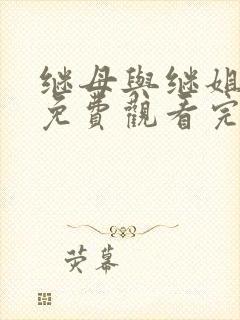 继母與继姐
免費觀看完
荧幕